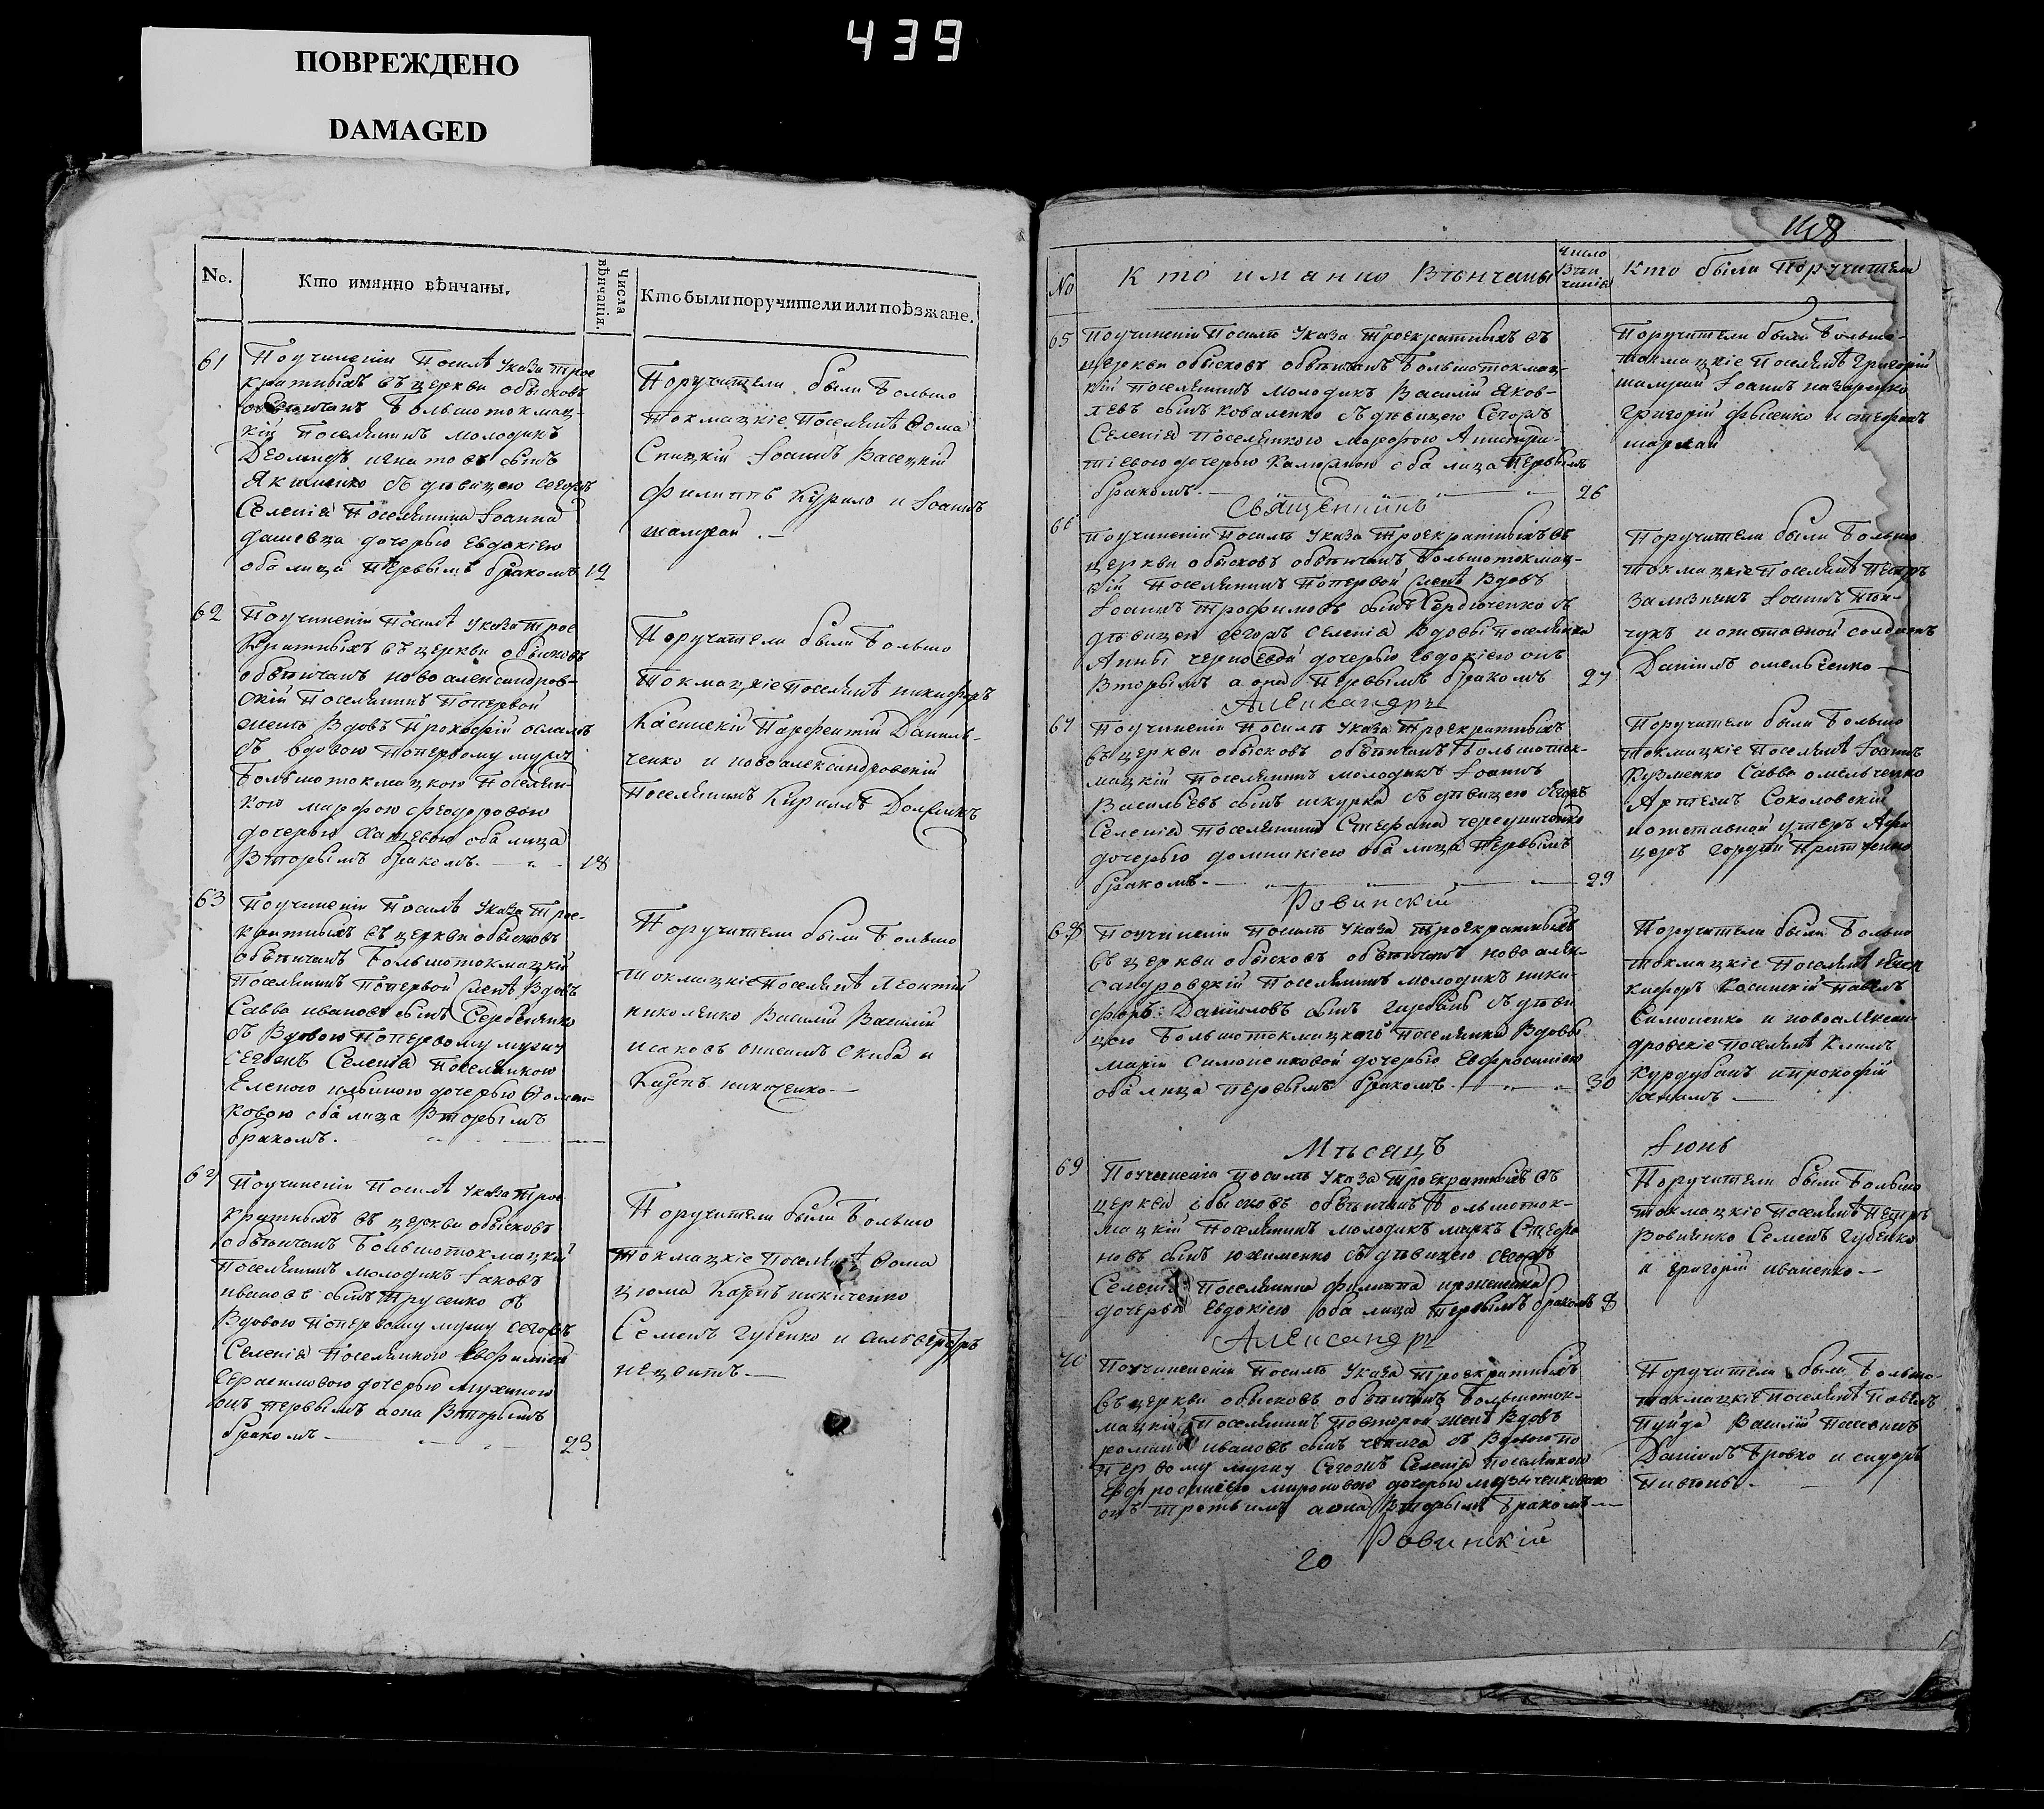 439
ПОВРЕЖДЕНО
DAMAGED
No.
Кто имянно вѣнчаны.
Числа вѣнчанія.
Кто были поручители или поѣзжане.
61
Поучиненіи Посилѣ Указа трое
кратныхъ въ церкви обысковъ
обвѣнчанъ Большотокмац-
кій Поселянинъ молодикъ
игнатовъ сынъ
Якименко съ дѣвицею сегожъ
Селенія Поселянина Іоанна
дочерью Евдокіею
оба лица Первымъ бракомъ 12
Поручители были Большо
токмацкіе Поселяне Ѳома
Спицкій Іоаннъ Васецкій
Филиппъ Курило и Іоаннъ
шамрай.
62
Поучиненіи Посилѣ Указа трое
кратныхъ въ церкви обысковъ
обвѣнчанъ новоалександров-
скій Поселянинъ Попервой
женѣ Вдовъ Прокофій
съ вдовою Попервому мужѣ
Большотокмацкою Поселян-
кою марфою Феодоровою
дочерью оба лица
Вторымъ бракомъ. 18
Поручители были Большо
Токмацкіе Поселянѣ никифоръ
Касинскій Парфентій Даниль-
ченко и новоалександровскій
Поселянинъ Кириллъ
63
Поучиненіи Посилѣ Указа Трое-
кратныхъ въ церкви обысковъ
обвѣнчанъ Большотокмацкій
Поселянинъ Попервой женѣ Вдовъ
Савва ивановъ сынъ
съ Вдовою Попервому мужу
сегожъ Селенія Поселянкою
Еленою ильиною дочерью
ковою оба лица Вторымъ
бракомъ.
Поручители были Большо
токмацкіе Поселянѣ Леонтій
николенко Василій Василій
Исаковъ Скиба и
Карпъ никиченко
64
Поучиненіи Посилѣ Указа Трое
кратныхъ въ церкви обысковъ
обвѣнчанъ Большотокмацкій
Поселянинъ молодикъ Іаковъ
ивановъ сынъ Трусенко съ
Вдовою Попервому мужу сегожъ
Селенія Поселянкою Евфиміею
Герасимовою дочерью мухиною
онъ первымъ аона Вторымъ
бракомъ 23
Поручители были Большо
токмацкіе Поселянѣ Ѳома
цюма Карпъ никиченко
Семенъ Губенко и
нецвитъ.
No
Кто имянно Вѣнчаны
Число Вѣнчанія
Кто были Поручители
65
Поучиненіи Посилѣ Указа троекратныхъ въ
церкви обысковъ обвѣнчанъ Большотокмац-
кій Поселянинъ молодикъ Василій Яков-
левъ сынъ Коваленко съ дѣвицею Сегожъ
Селенія Поселянкою марфою
дочерью оба лица Первымъ
бракомъ. 26
Поручители были Большо-
токмацкіе Поселянѣ Григорій
шамрай Іоаннъ назаренко
Григорій и стефанъ
Священникъ
66
Поучиненіи Посилѣ Указа Троекратныхъ въ
церкви обысковъ обвѣнчанъ Большотокмац-
кій Поселянинъ Попервой женѣ Вдовъ
Іоаннъ Трофимовъ сынъ Сердюченко съ
дѣвицею сегожъ Селенія Вдовы Поселянки
Анны дочерью Евдокіею онъ
Вторымъ а она Первымъ бракомъ 27
Поручители были Большо
токмацкіе Поселянѣ Петръ
Зализнякъ Іоаннъ
и отставной солдатъ
Даніилъ омельченко
Александръ
67
Поучиненіи Посилѣ Указа Троекратныхъ
въ церкви обысковъ обвѣнчанъ Большоток-
мацкій Поселянинъ молодикъ Іоаннъ
Васильевъ сынъ шкурка съ дѣвицею Сегожъ
Селенія Поселянина Стефана
дочерью домникіею оба лица Первымъ
бракомъ. 29
Поручители были Большо
токмацкіе Поселянѣ Іоаннъ
Кузменко Савва омельченко
Артемъ Соколовскій
и отставной
Ровинскій
68
Поучиненіи Посилѣ Указа троекратныхъ
въ церкви обысковъ обвѣнчанъ новоалек-
сандровскій Поселянинъ молодикъ ники-
форъ Даніиловъ сынъ съ дѣви
цею Большотокмацкаго Поселянки Вдовы
маріи Симоненковой дочерью Евфросиніею
оба лица Первымъ бракомъ. 30
Поручители были Большо
токмацкіе Поселянѣ
Касинскій Павелъ
Симоненко и новоалексан-
дровскіе Поселянѣ Климъ
Курдубанъ и прокофій
Мѣсяцъ
Іюнь
69
Поучиненіи Посилѣ Указа Троекратныхъ въ
церкви обысковъ обвѣнчанъ Большоток-
мацкій Поселянинъ молодикъ маркъ Стефа
новъ сынъ юхименко съ дѣвицею сегожъ
Селенія Поселянина Филиппа
дочерью Евдокіею оба лица Первымъ бракомъ 8
Поручители были Большо
токмацкіе Поселянѣ Петръ
Вовченко Семенъ Губенко
и Григорій иваненко
Александръ
70
Поучиненіи Посилѣ Указа Троекратныхъ
въ церкви обысковъ обвѣнчанъ Большоток-
мацкій Поселянинъ Повторой женѣ Вдовъ
романъ ивановъ сынъ чепига съ Вдовою по
первому мужу Сегожъ Селенія Поселянкою
Евфросиніею мироновою дочерью
онъ третьимъ аона Вторымъ бракомъ
Поручители были Большо-
токмацкіе Поселянѣ Павелъ
Пуйда Василій
Даніилъ Бровко и сидоръ
Ровинскій
20